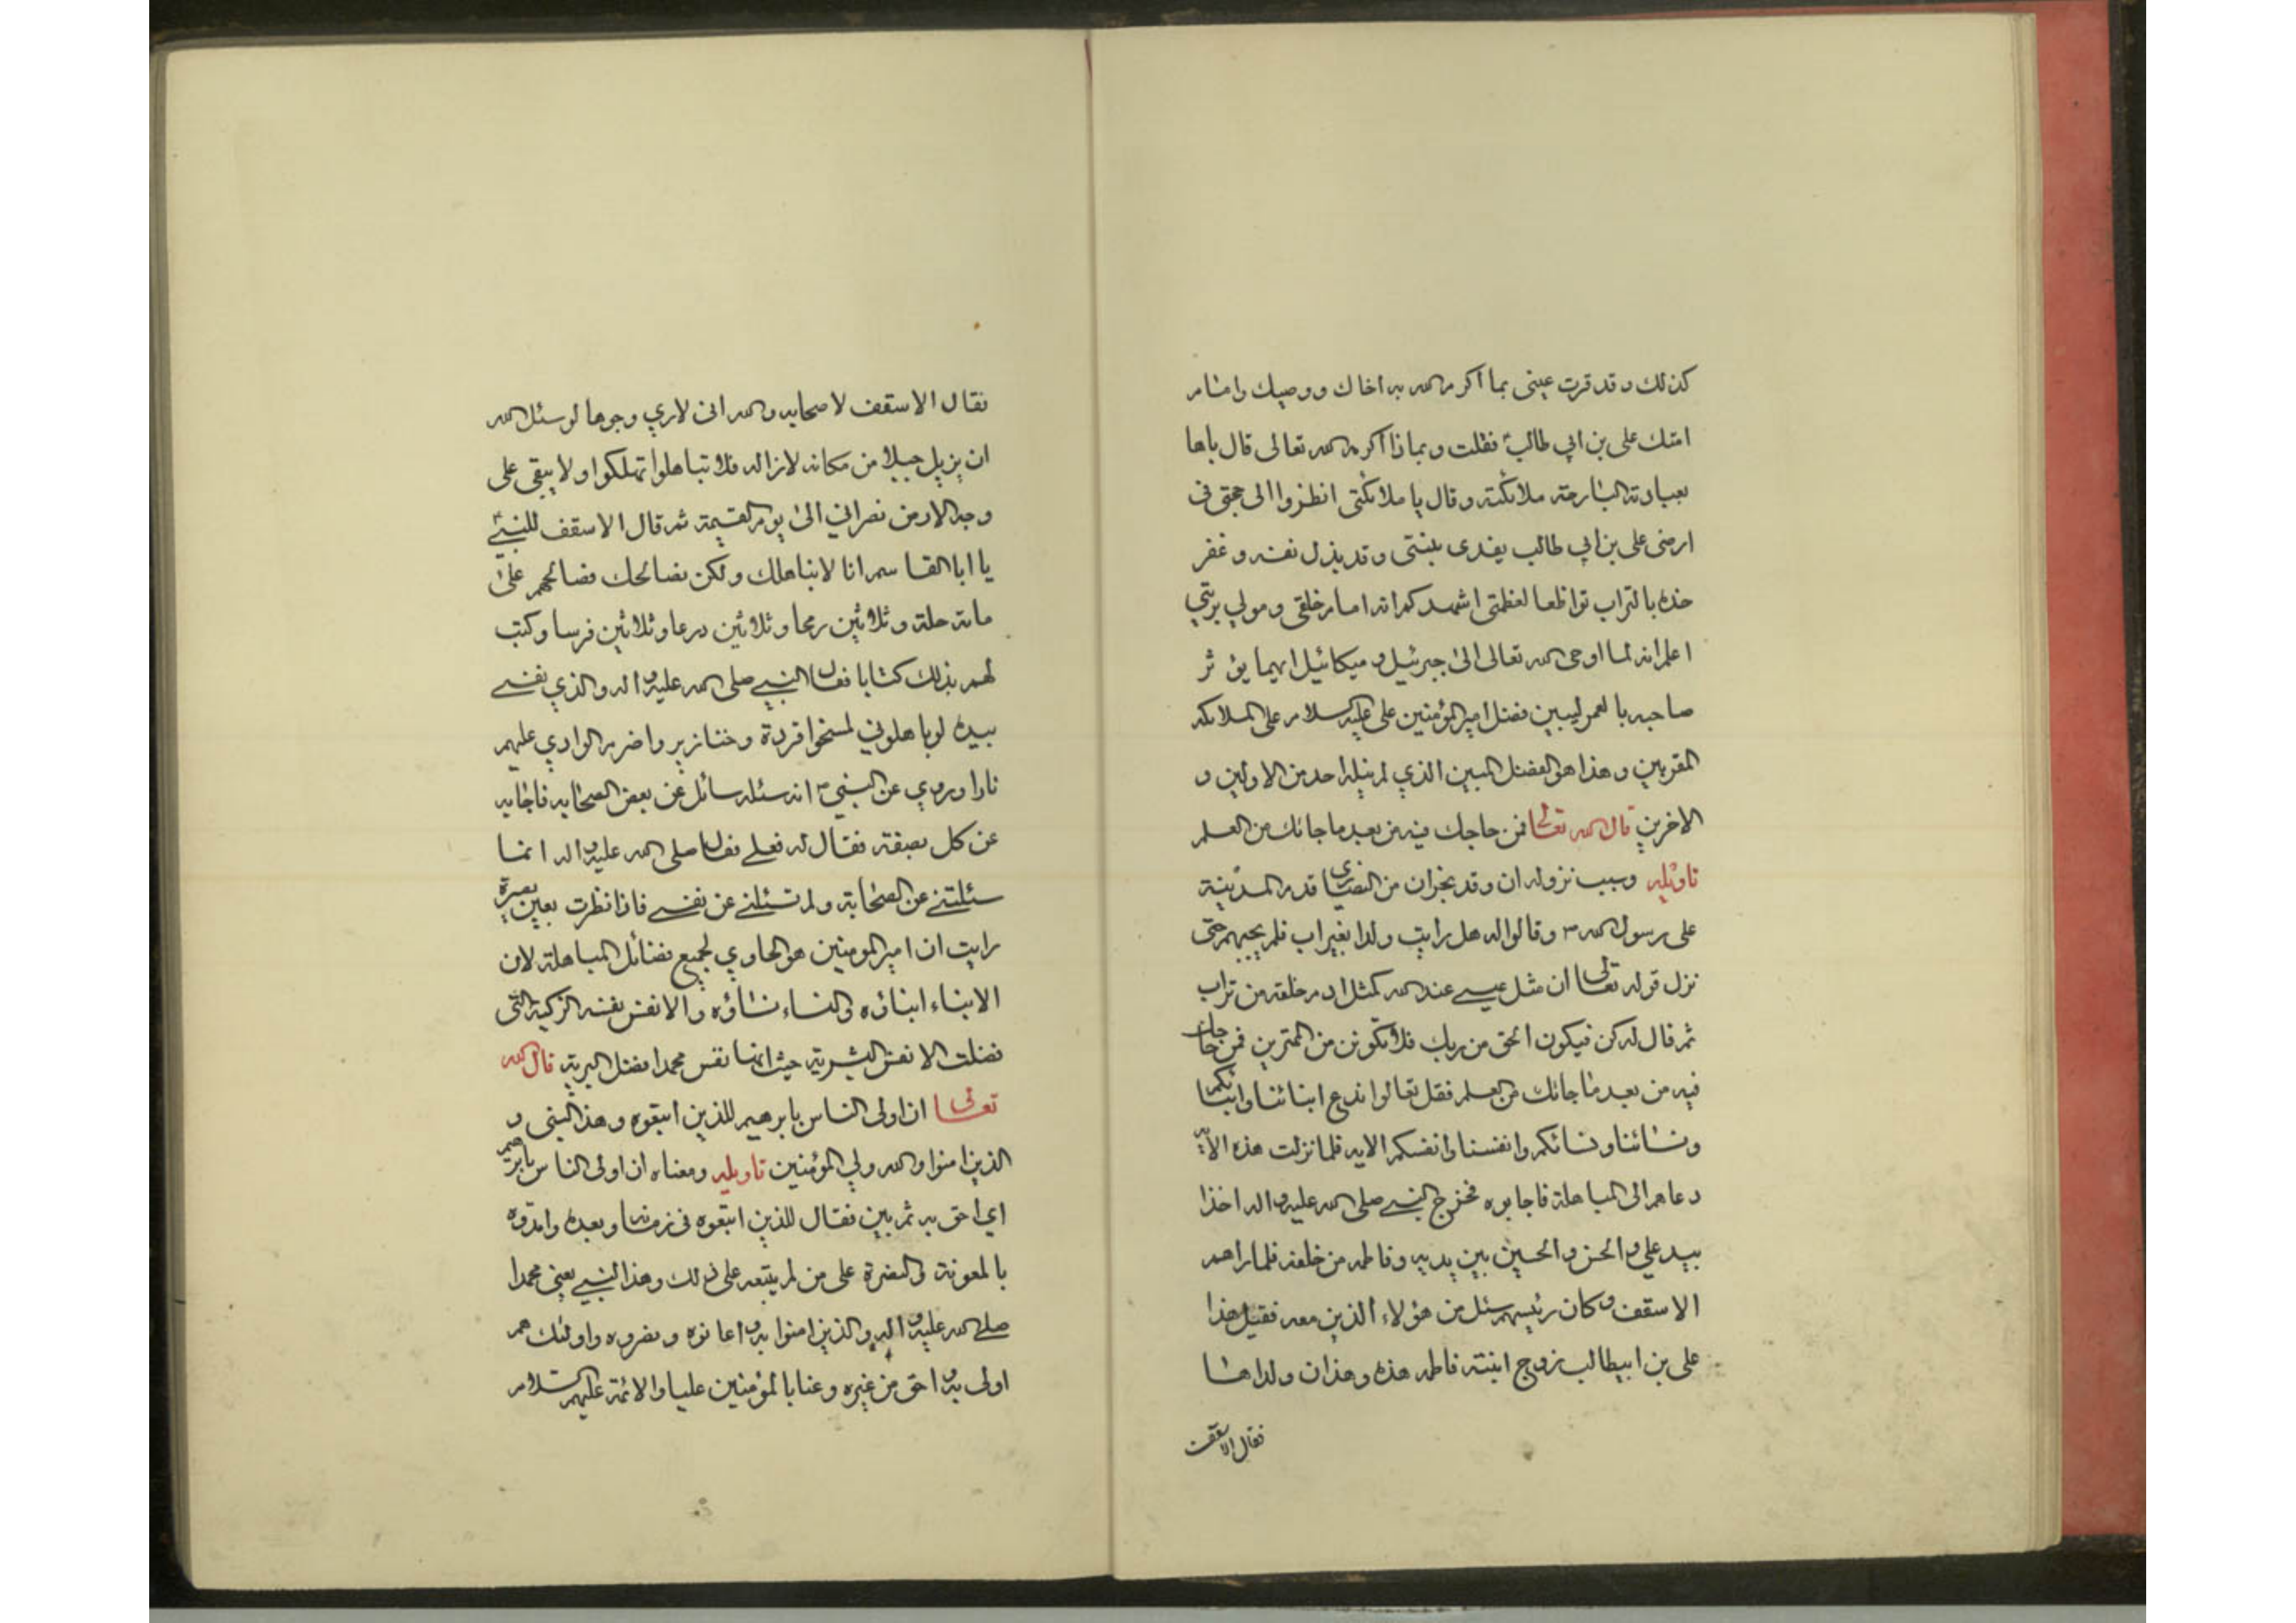 كذلك وقد قرت عيني بما اكرم الله به اخاك ووصيك وامام
امتك علي بن ابي طالب ع فقلت وبماذا اكرمه الله تعالى قال باها
بعبادته البارحة ملائكته وقال يا ملائكتي انظروا الى حجتي في
ارضي علي بن ابي طالب يفدي بنبيي وقد بذل نفسه وعفر
خده بالتراب تواظعا لعظمتي اشهدكم انه امام خلقي ومولي بريتي
اعلم انه لما اوحى الله تعالى الى جبرئيل وميكائيل ايهما يؤثر
صاحبه بالعمر ليبين فضل امير المؤمنين علي عليه السلام على الملائكة
المقربين وهذا هو الفضل المبين الذي لم ينله احد من الاولين و
الاخرين قال الله تعالى فمن حاجك فيه من بعد ما جائك من العلم
تاويله وسبب نزوله ان وفد نجران من النصارى قدم المدينة
على رسول الله ص وقالوا له هل رايت ولدا بغير اب فلم يجبهم حتى
نزل قوله تعالى ان مثل عيسى عند الله كمثل ادم خلقه من تراب
ثم قال له كن فيكون الحق من ربك فلا تكونن من الممترين فمن حاجك
فيه من بعد ما جائك من العلم فقل تعالوا ندع ابنائنا وابنائكم
ونسائنا ونسائكم وانفسنا وانفسكم الايه فلما نزلت هذه الاية
دعاهم الى المباهلة فاجابوه فخرج النبي صلى الله عليه واله اخذا
بيد علي والحسن والحسين بين يديه وفاطمه من خلفه فلما راهم
الاسقف وكان رئيسهم سئل من هؤلاء الذين معه فقيل هذا
علي بن ابيطالب زوج ابنته فاطمه هذه وهذان ولداها
فقال الاسقف
فقال الاسقف لاصحابه والله اني لاري وجوها لو سئل الله
ان يزيل جبلا من مكانه لازاله فلا تباهلوا تهلكوا ولا يبقى على
وجه الارض نصراني الى يوم القيمة ثم قال الاسقف للنبي ص
يا ابا القاسم انا لا نباهلك ولكن نصالحك فصالحهم على
مائة حلة وثلاثين رمحا وثلاثين درعا وثلاثين فرسا وكتب
لهم بذلك كتابا فقال النبي صلى الله عليه واله والذي نفسي
بيده لو باهلوني لمسخوا قردة وخنازير واضرم الوادي عليهم
نارا وروي عن النبي ص انه سئله سائل عن بعض الصحابه فاجابه
عن كل بصفة فقال له فعلي فقال صلى الله عليه واله انما
سئلتني عن الصحابة ولم تسئلني عن نفسي فاذا نظرت بعين بصيرة
رايت ان امير المومنين هو الحاوي لجميع فضائل المباهلة لان
الابناء ابناؤه والنساء نساؤه والانفس نفسه الزكية التي
فضلت الانفس البشرية حيث انها نفس محمد افضل البرية قال الله
تعالى ان اولى الناس بابرهيم للذين اتبعوه وهذا النبي و
الذين امنوا والله ولي المؤمنين تاويله ومعناه ان اولى الناس بابرهيم
اي احق به ثم بين فقال للذين اتبعوه في زمنه وبعده وامدوه
بالمعونة والنصرة على من لم يتبعه على ذلك وهذا النبي يعني محمدا
صلى الله عليه واله والذين امنوا به واعانوه ونصروه واولئك هم
اولى به واحق من غيره وعنا بالمؤمنين عليا والائمة عليهم السلام